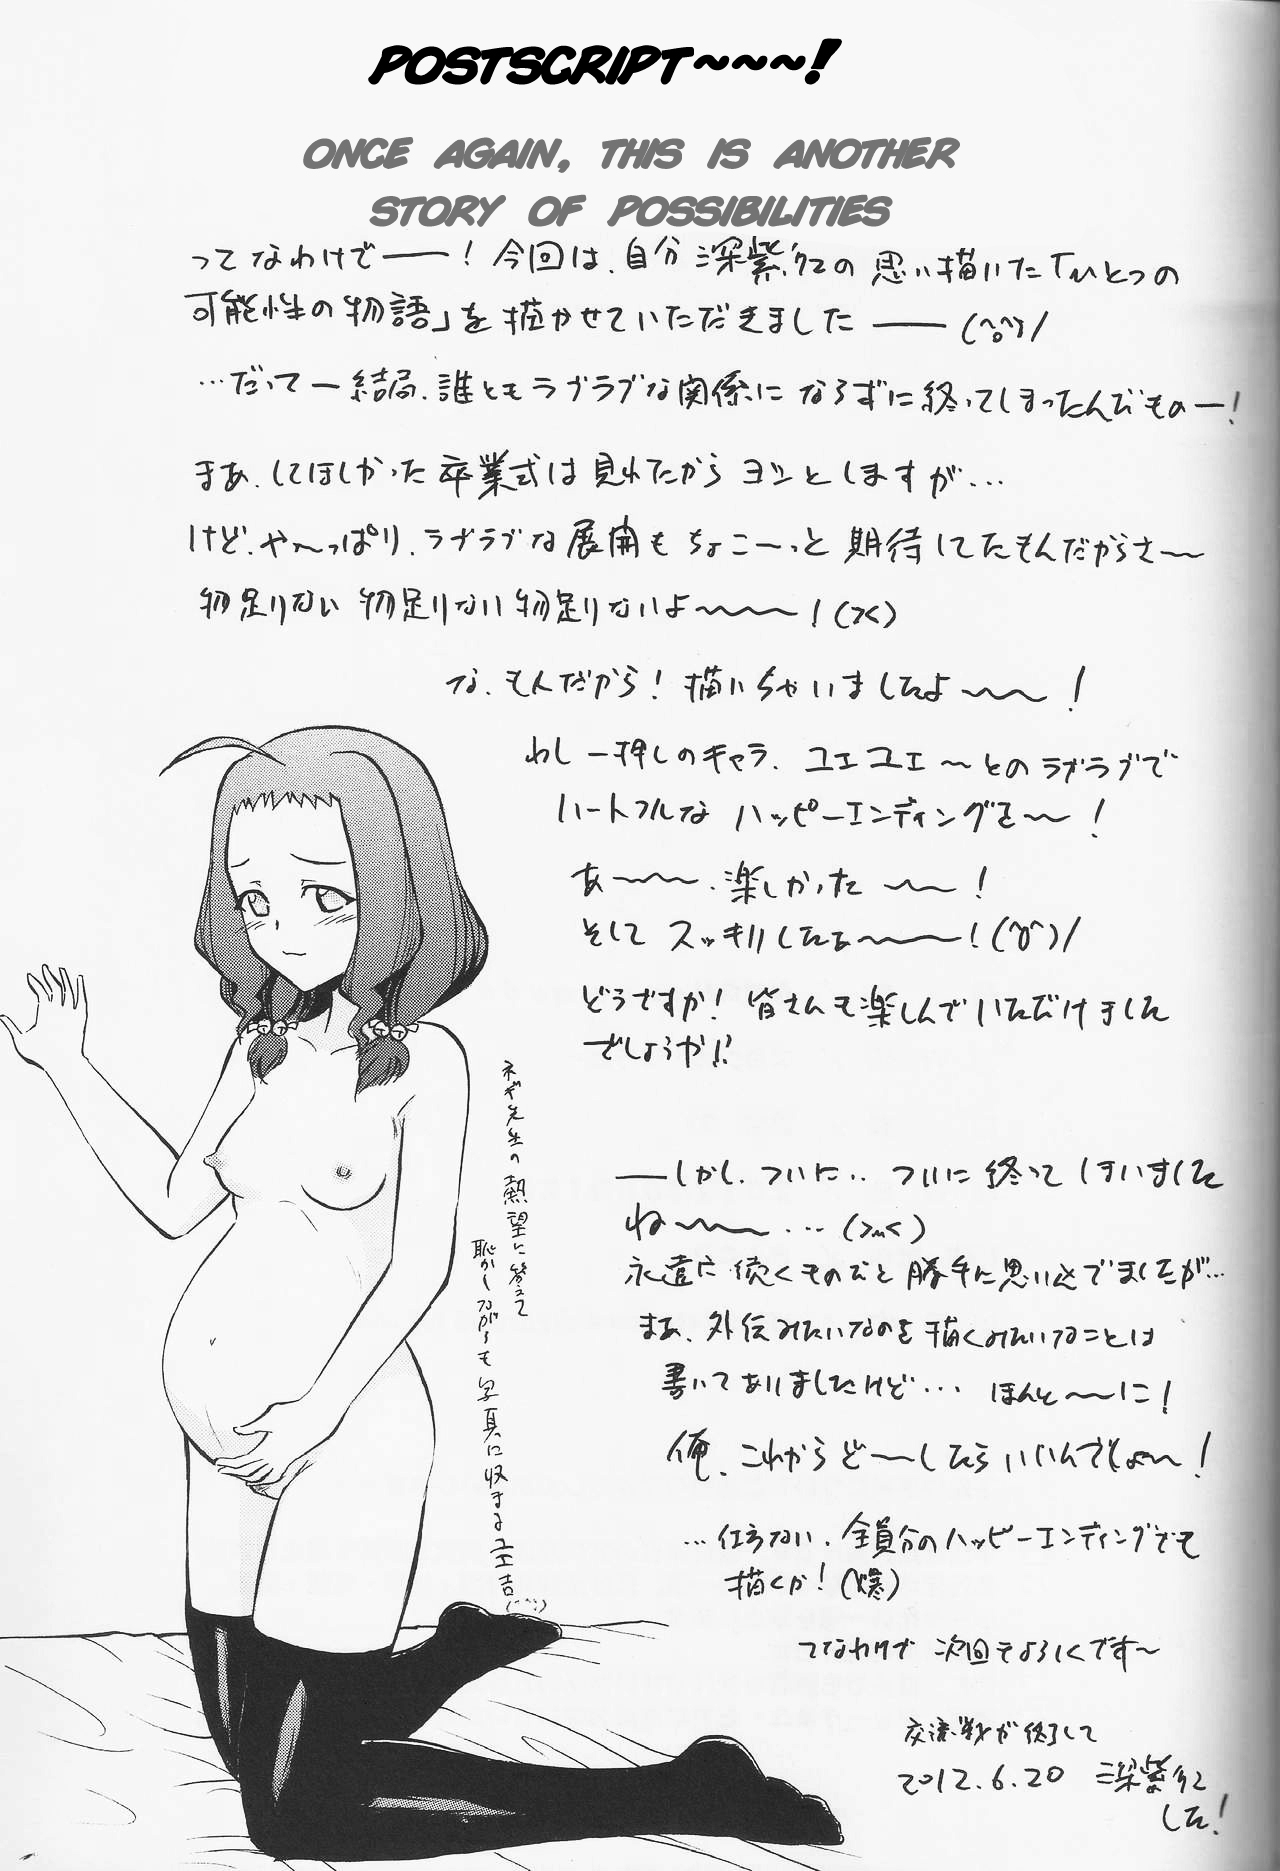 POSTSCRIPT~~~!
ONCE AGAIN, THIS IS ANOTHER
STORY OF POSSIBILITIES
ってなわけでー！今回は、自分 深紫紅の思い描いた「ひとつの
可能性の物語」を描かせていただきましたー
…だって一結局、誰ともラブラブな関係にならずに終ってしまったんだものー！
まあ、してほしかった卒業式は見れたからヨシとしますが…
けど、や〜っぱり、ラブラブな展開もちょこーっと期待してたもんだからさ〜
物足りない物足りない物足りないよ〜〜！(><)
な、もんだから！描いちゃいましたよ〜〜！
わし一押しのキャラ、ユエユエ〜とのラブラブで
ハートフルなハッピーエンディングを〜！
あ〜〜、楽しかった〜〜！
そしてスッキリしたぁ〜〜！(^O^)/
どうですか！皆さんも楽しんでいただけました
でしょうか!?
ーしかし、ついに‥ついに終ってしまいました
ね〜〜…
永遠に続くものだと勝手に思い込でましたが…
まあ、外伝みたいなのを描くみたいなことは
書いてありましたけど… ほんと〜〜に！
俺、これからどーしたらいいんでしょ〜！
…仕方ない、全員分のハッピーエンディングでも
描くか！(爆)
てなわけで 次回もよろしくです〜
交流戦が終了して
2012.6.20 深紫紅
した！